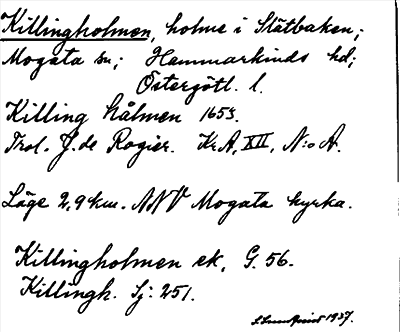 Killingholmen, holme i Slätbaken;
Mogata sn; Hammarkinds hd;
Östergötl. l.
Killing hålmen 1653.
Trol. J. de Rogier. Kr.A, XII, N:o A.
Läge 2,9 km. NNV Mogata kyrka.
Killingholmen ek, G. 56.
Killingh. Sj: 251.
1937.